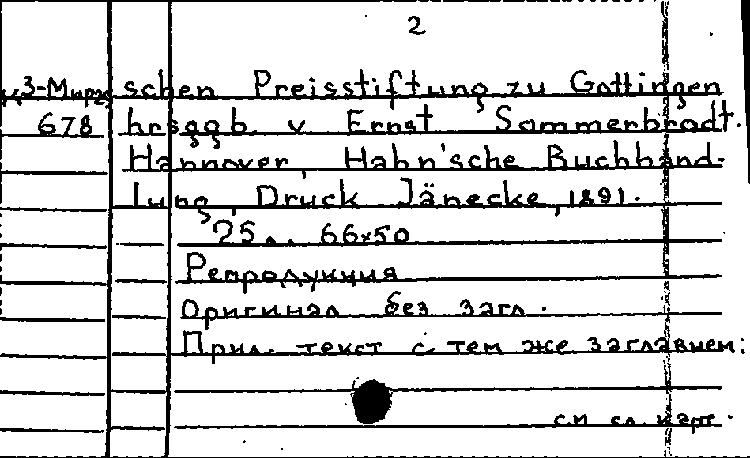 2
schen Preisstiftung zu Gottingen
678 hrsggb. v Ernst Sommerbrodt.
Hannover, Hahn'sche Buchhand-
lung, Druck Jänecke, 1891.
25 л. 66x50
Репродукция
Оригинал без загл.
Прил. текст с тем же заглавием:
см сл. карт.